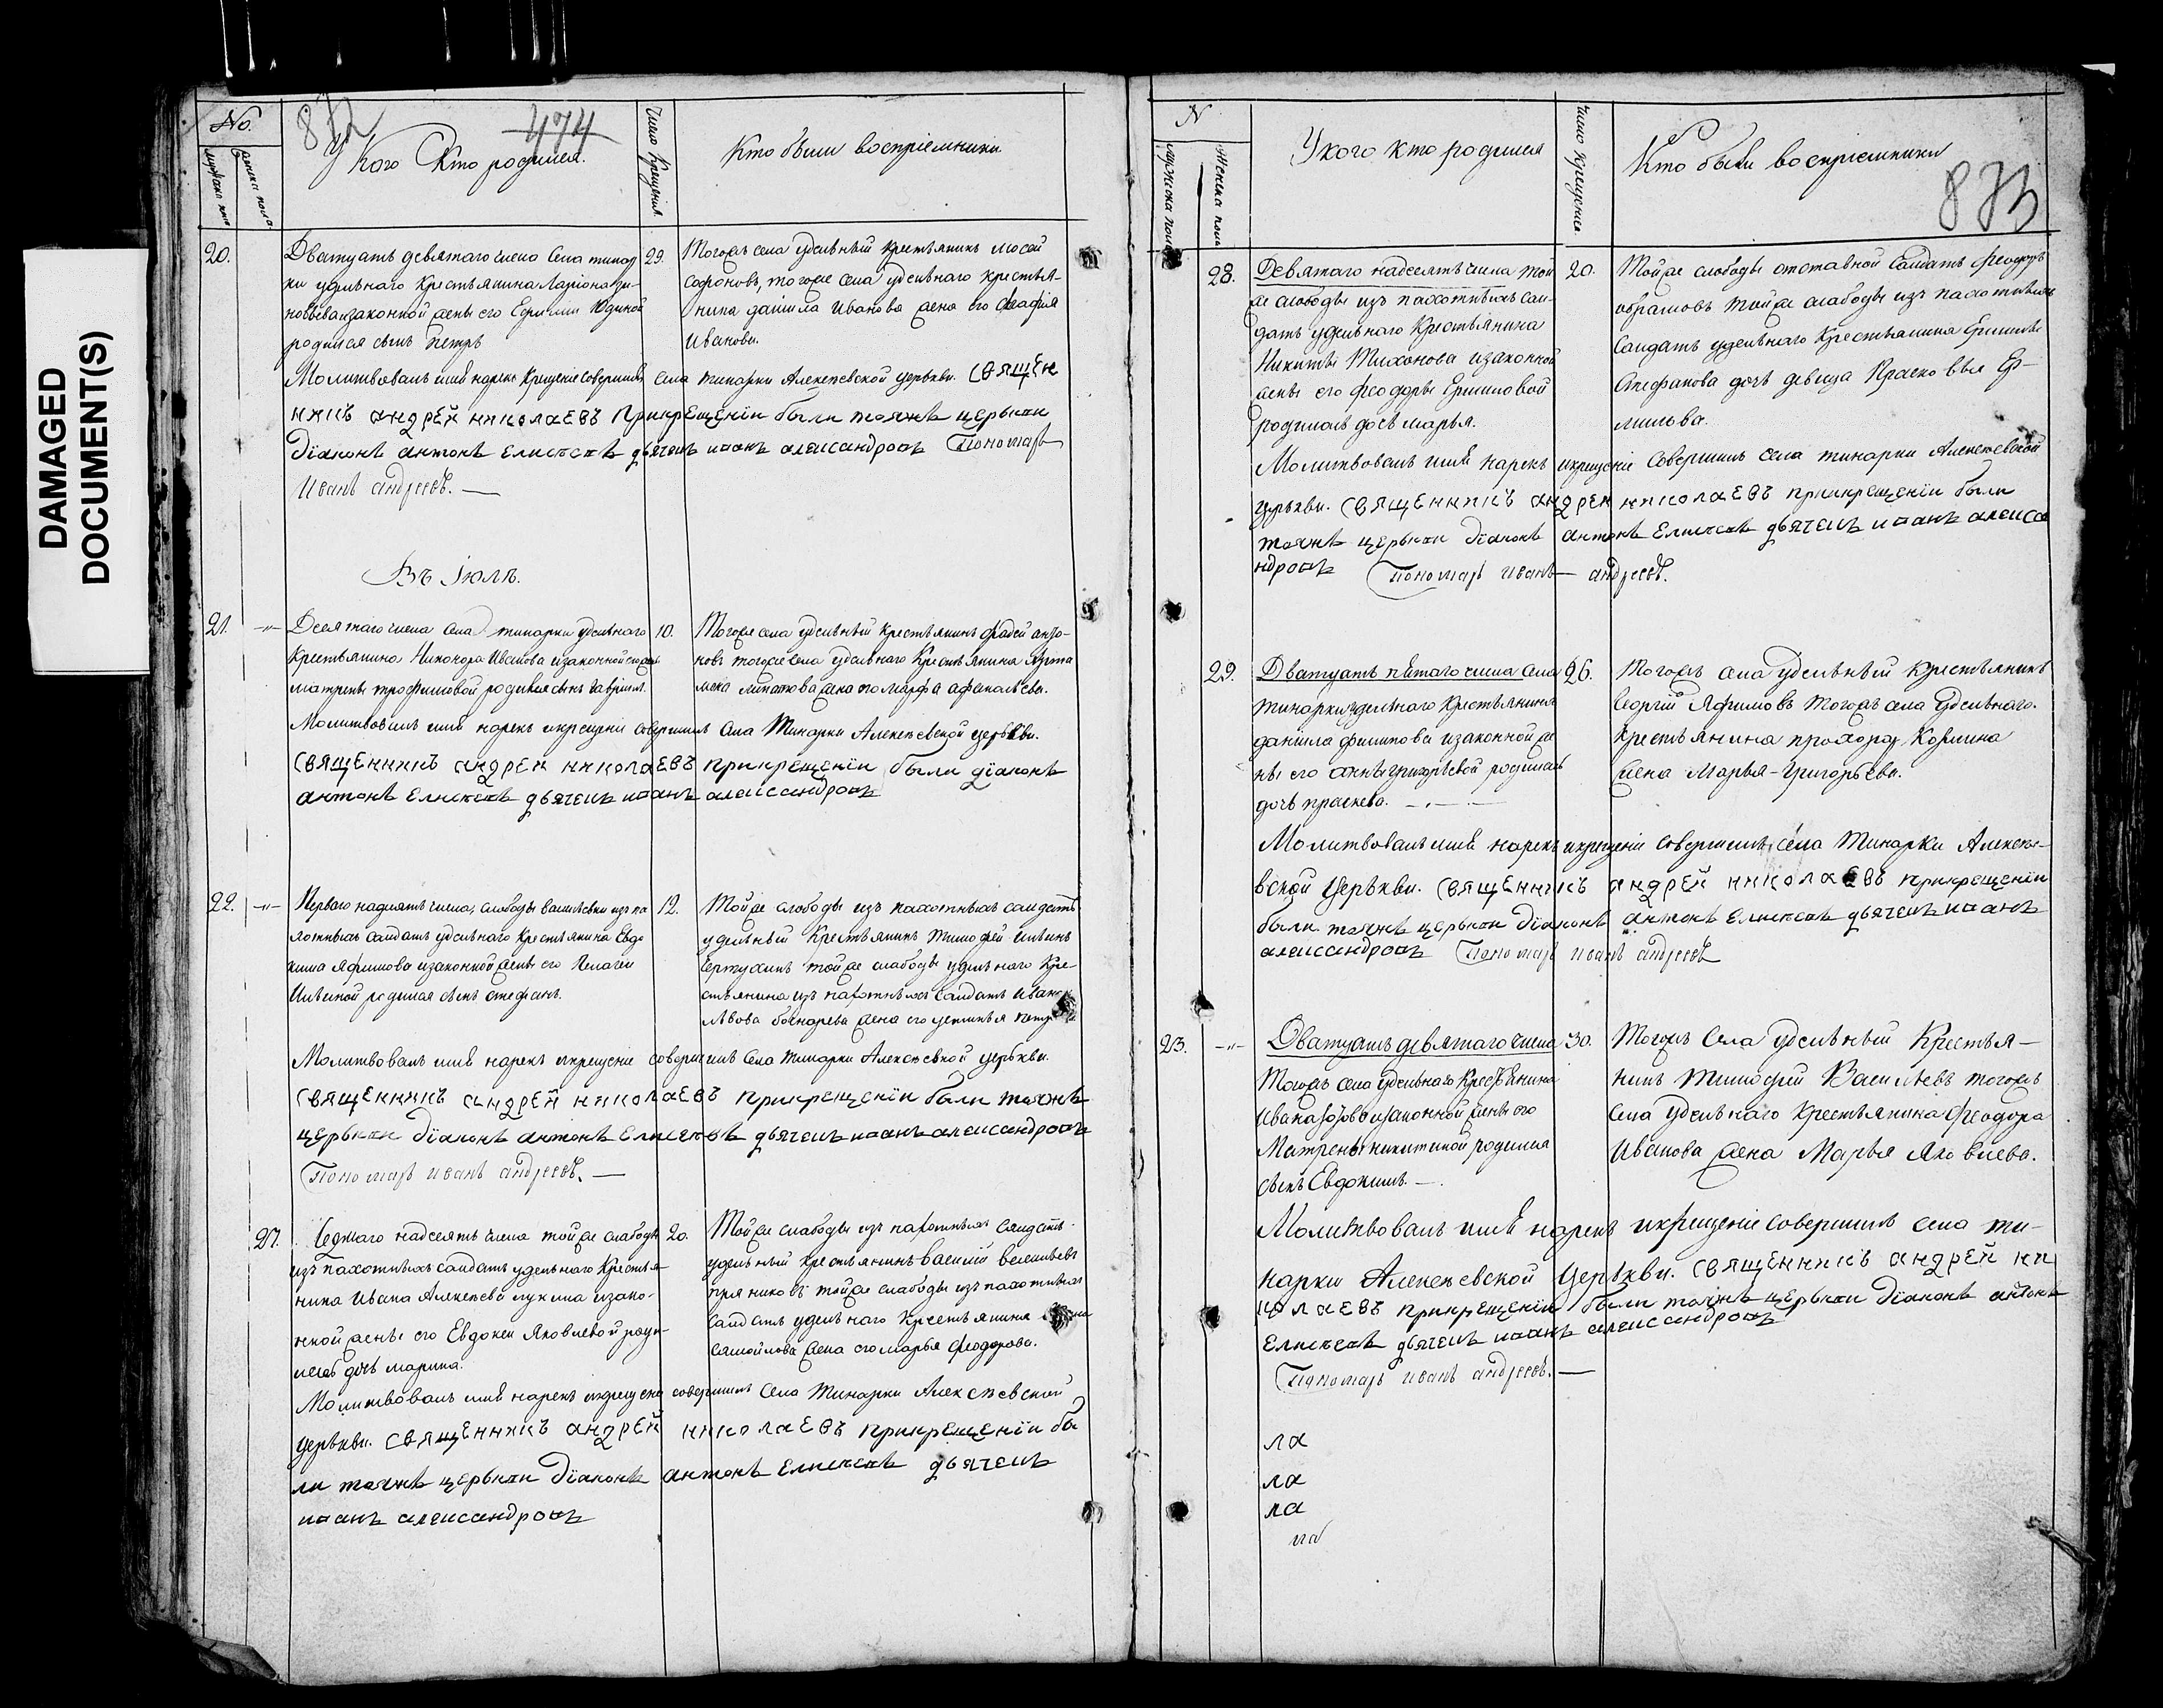 DAMAGED
DOCUMENT(S)
No.
мужеска пола
женска пола
872
474
У Кого Кто родился.
Число Крещения
Кто были восприемники
20.
Дватцать девятаго числа Села тинар
ки удельнаго Крестьянина Лариона Зи-
новьева изаконной жены его Юдиной
родился сынъ Петръ
29.
Тогожъ села удельный Крестьянинъ мосей
Софоновъ, тогоже села удельнаго крестья-
нина данила Иванова жена его
Иванова.
Молитвовалъ имя нарекъ Крещение Совершилъ села тинарки Алексеевской церькви. Священ
никъ андрей николаевъ При крещеніи были тояжъ церькви
діаконъ антонъ Елисеевъ дьячекъ иванъ александровъ Пономарь
Иванъ андреевъ.
Въ Іюлѣ.
21.
Десятаго числа Села тинарки удельнаго
Крестьянина Никонора Иванова изаконной жены
матрены трофимовой родился сынъ гавріилъ.
10.
Тогоже села удельный крестьянинъ фадей анто-
новъ тогоже села удельнаго Крестьянина Арта
мона жена марфа афонасьева.
Молитвовалъ имя нарекъ икрещение совершилъ Села Тинарки Алексеевской церькви.
Священникъ андрей николаевъ прикрещеніи были діаконъ
антонъ Елисеевъ дьячекъ иванъ александровъ
22.
Перваго надесять числа, слободы васильевки изъ па
хотныхъ салдатъ удельнаго Крестьянина Евдо
кима Яфимова изаконной жены его Пелагеи
Ильиной родился сынъ стефанъ.
12.
Тойже слободы изъ пахотныхъ салдатъ
удельный Крестьянинъ Тимофей ильинъ
тойже слабоды удельнаго Кре-
стьянина изъ пахотныхъ салдатъ Ивана
Львова жена его
Молитвовалъ имя нарекъ икрещение совершилъ Села тинарки Алексеевской церькви.
Священникъ андрей николаевъ прикрещеніи были тояжъ
церькви діаконъ антонъ Елисеевъ дьячекъ иванъ александровъ
Пономарь иванъ андреевъ.
27.
Седмаго надесять числа тойже слабоды
изъ пахотныхъ салдатъ удельнаго Крестья-
нина Ивана Алексеева лукина изако-
нной жены его Евдокеи Яковлевой роди-
лась дочь марина.
20.
Тойже слабоды изъ пахотныхъ салдатъ
удельный крестьянинъ василий васильевъ
пряниковъ тойже слабоды изъ пахотныхъ
салдатъ удельнаго Крестьянина
самойлова жена его марья феодорова.
Молитвовалъ имя нарекъ икрещение совершилъ Села тинарки Алексеевской
церькви. Священникъ андрей николаевъ прикрещеніи бы
ли тояжъ церькви діаконъ антонъ Елисеевъ дьячекъ
иванъ александровъ
N
мужеска пола
Женска пола
У кого кто родился
Число Крещения
Кто были восприемники
873
28.
Девятаго надесять числа той
же слободы изъ пахотныхъ сал-
датъ удельнаго Крестьянина
Никиты Тихонова изаконной
жены его феодоры Ермиловой
родилась дочь марья.
20.
Тойже слободы отставной Салдатъ феодоръ
абрамовъ тойже слабоды изъ пахотныхъ
Салдатъ удельнаго Крестьянина Ермилы
Стефанова дочь девица Прасковья Ер-
милова.
Молитвовалъ имя нарекъ икрещение Совершилъ села тинарки Алексеевской
церькви. Священникъ андрей николаевъ прикрещеніи были
тояжъ церькви діаконъ антонъ Елисеевъ дьячекъ иванъ алекса
ндровъ Пономарь иванъ андреевъ.
29.
Дватцать пятаго числа Села
тинарки удельнаго Крестьянина
данила филипова изаконной же
ны его анны григорьевой родилась
дочь праскева.
26.
Тогожъ села удельный крестьянинъ
Георгій Яфимовъ тогожъ села Удельнаго
Крестьянина прохора Козмина
жена Марья Григорьева.
Молитвовалъ имя нарекъ икрещение совершилъ села Тинарки Алексее-
вской Церькви. Священникъ андрей николаевъ прикрещеніи
были тояжъ церькви діаконъ антонъ Елисеевъ дьячекъ иванъ
александровъ Пономарь иванъ андреевъ
23.
Дватцать девятаго числа
Тогожъ села удельнаго Крестьянина
Ивана изаконной жены его
Матрены никитиной родился
сынъ Евдокимъ.
30.
Тогожъ Села удельный Крестья-
нинъ Тимофей Васильевъ тогожъ
села удельнаго крестьянина феодора
Иванова жена Марья Яковлева.
Молитвовалъ имя нарекъ икрещение совершилъ села ти-
нарки Алексеевской Церькви. Священникъ андрей ни
колаевъ прикрещеніи были тояжъ церькви діаконъ антонъ
Елисеевъ дьячекъ иванъ александровъ
Пономарь иванъ андреевъ.
ла
ла
ла